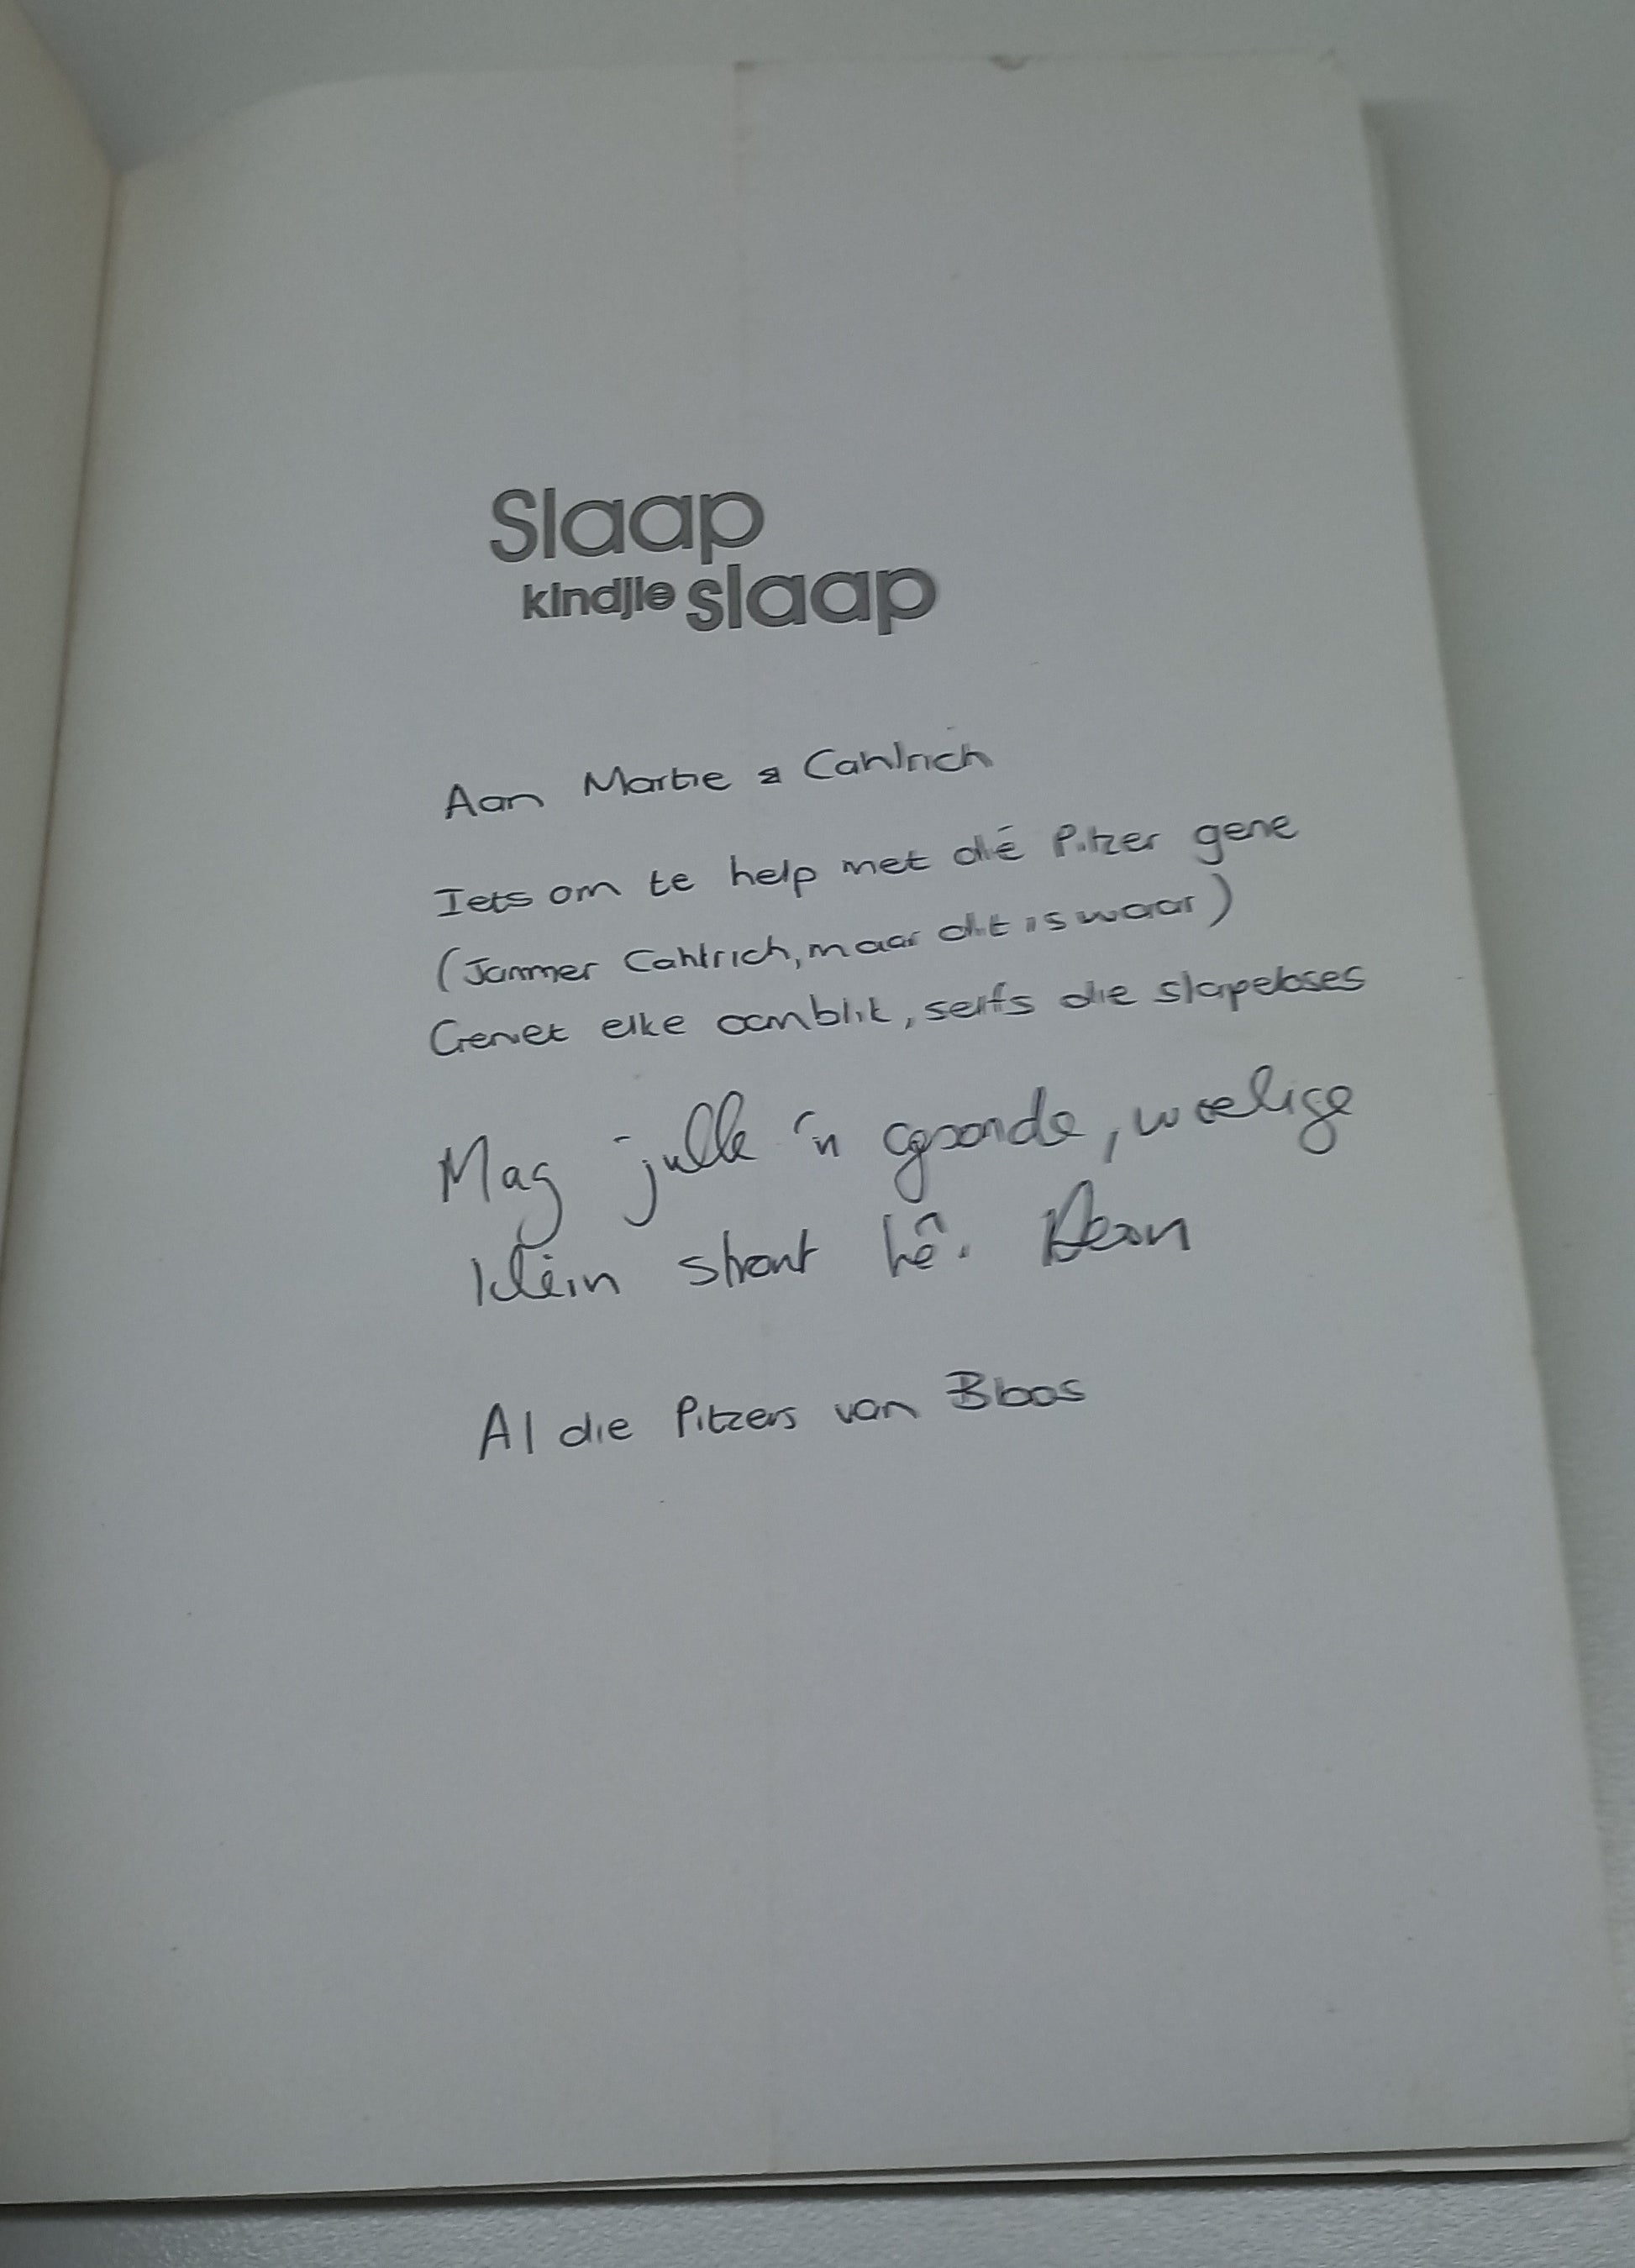 Slaap
kindjie slaap
Aan Martie & Cahlrich
Iets om te help met dié Pitzer gene
(Jammer Cahlrich, maar dit is waar)
Geniet elke oomblik, selfs die slapeloses
Mag julle 'n gesonde, woelige
klein stront hê. Deon
Al die Pitzers van Bloos